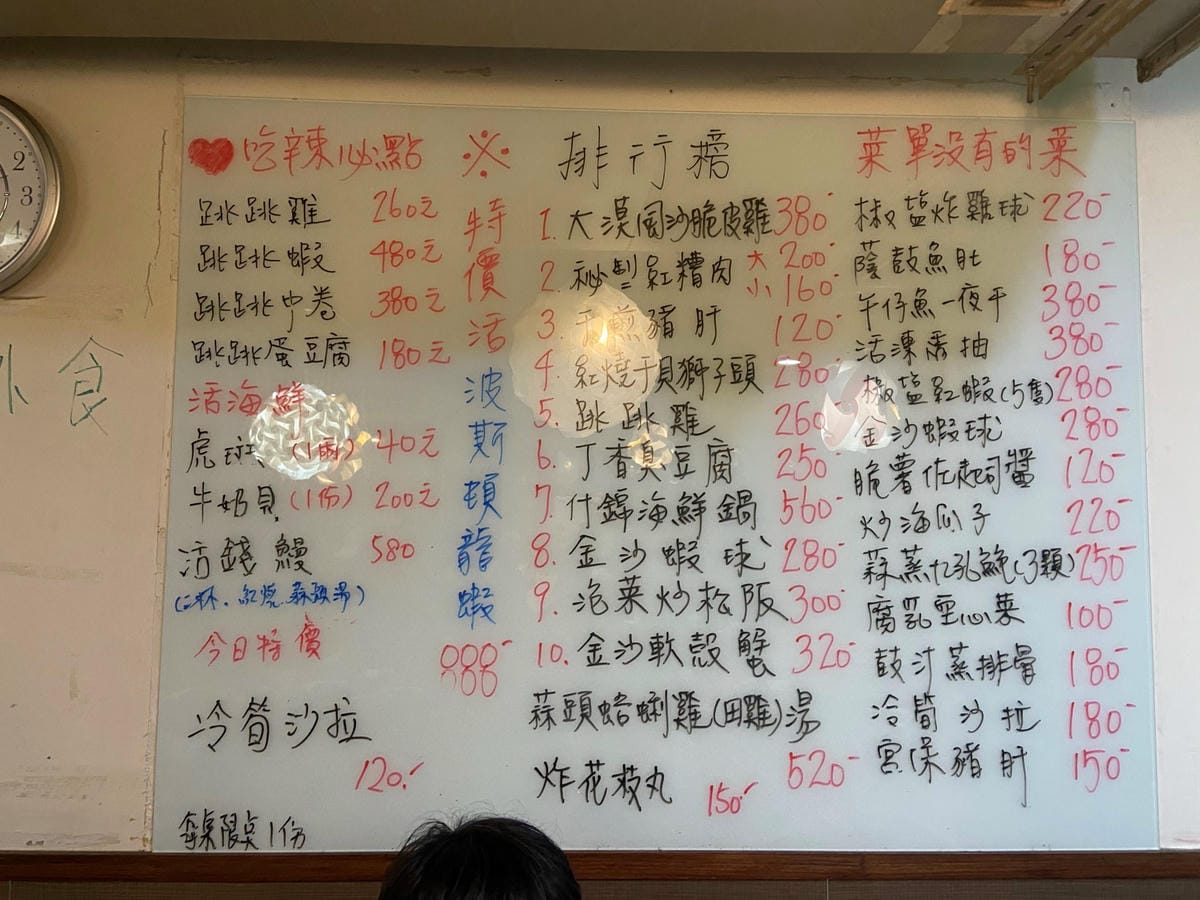 ❤吃辣必點
跳跳雞 260元
跳跳蝦 480元
跳跳中卷 380元
跳跳蛋豆腐 180元
活海鮮
虎斑 (1兩) 40元
牛奶貝 (1份) 200元
活錢鰻 580
(三杯、紅燒、蒜頭湯)
今日特價
冷筍沙拉
120.-
每桌限點1份
※
特價活波斯頓龍蝦
888-
排行榜
1. 大漠風沙脆皮雞 380-
2. 祕製紅糟肉 大 200-
小 160-
3. 干煎豬肝 120-
4. 紅燒干貝獅子頭 280-
5. 跳跳雞 260
6. 丁香魚豆腐 250-
7. 什錦海鮮鍋 560-
8. 金沙蝦球 280-
9. 泡菜炒松阪 300-
10. 金沙軟殼蟹 320-
蒜頭蛤蜊雞(田雞)湯
520-
炸花枝丸 150.-
菜單沒有的菜
椒塩炸雞球 220-
蔭鼓魚肚 180-
午仔魚一夜干 380-
活凍香抽 380-
椒塩紅蝦(5隻) 280-
金沙蝦球 280-
脆薯佐起司醬 120-
炒海瓜子 220-
蒜蒸九孔鮑(3顆) 250-
腐乳空心菜 100-
鼓汁蒸排骨 180-
冷筍沙拉 180-
宮保豬肝 150-
外食
2
3
4